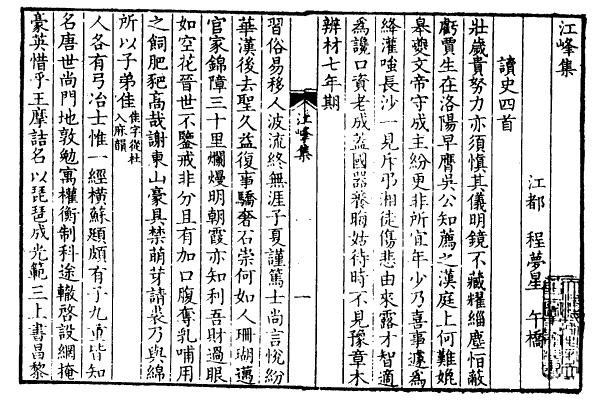 江峰集
江都　程夢星　午橋
讀史四首
壯歲貴努力亦須慎其儀明鏡不藏耀緇塵恒蔽
虧賈生在洛陽早膺吳公知薦之漢庭上何難媲
皋夔文帝守成主紛更非所宜年少乃喜事遽為
絳灌嗤長沙一見斥弔湘徒傷悲由來露才智適
為讒口資老成蓋國器養晦姑待時不見豫章木
辨材七年期
江峰集　一
習俗易移人波流終無涯子夏謹篤士尚言悅紛
華漢後去聖久益復事驕奢石崇何如人珊瑚邁
官家錦障三十里爛熳明朝霞亦知利吾財過眼
如空花晉世不鑒戒非分且有加口腹奪乳哺用
之飼肥豝高哉謝東山豪具禁萌芽請裘乃與綿
所以子弟佳佳字從杜入麻韻
人各有弓冶士惟一經橫蘇頲頗有子九重皆知
名唐世尚門地敦勉寓權衡制科途轍啓設網掩
豪英惜乎王摩詰名以琵琶成光範三上書昌黎